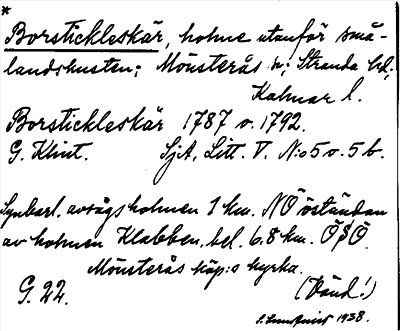 *
Borstickleskär, holme utanför små-
landskusten; Mönsterås n; Stranda hd;
Kalmar l.
Borstickleskär 1787 o. 1792.
G. Klint. SjA, Litt. V. N:o 5 o. 5 b.
Synbarl. avsågs holmen 1 km. NÖ öständan
av holmen Klabben, bel. 6.8 km. ÖSÖ.
Mönsterås köp:s kyrka.
G. 22. (Vänd!)
1938.